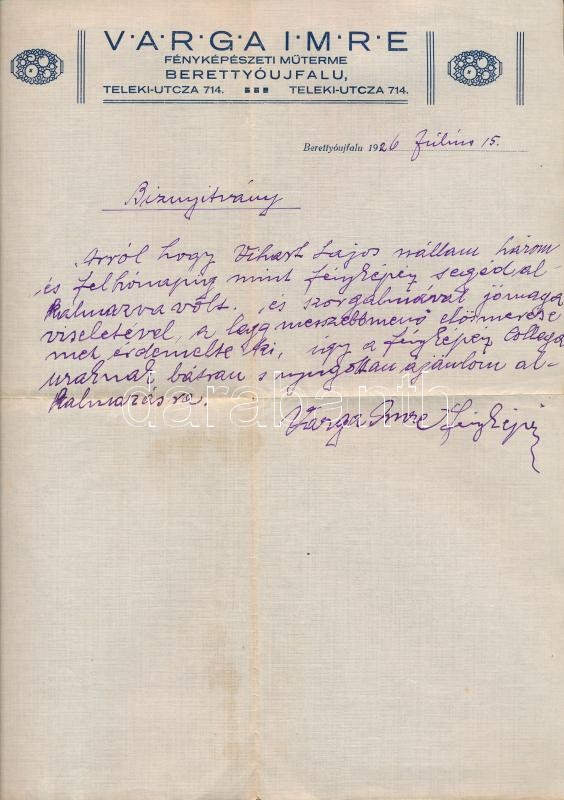 V·A·R·G·A I·M·R·E
FÉNYKÉPÉSZETI MŰTERME
BERETTYÓUJFALU,
TELEKI-UTCZA 714. TELEKI-UTCZA 714.
Berettyóujfalu 1926 Július 15.
Biznyitvány
Arról hogy Vihart Lajos nállam három
és felhónapig mint fényképész seged al-
kalmazva vólt. és szorgalmával jómaga
viseletével, a legmeszebbmenő elösmerése
met érdemelte ki, igy a fényképész Collega
uraknak bátran s nyugottan ajánlom al-
kalmazásra.
Varga Imre fényképész
darabanth